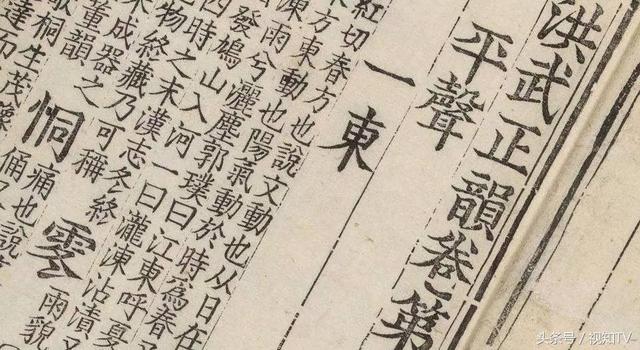 洪武正韻卷第
平聲
一東
紅切春方也說文動也从日在
方東動也陽氣動於時爲春
涷雨兮灑塵郭璞曰江東呼夏
發鳩山入河一曰瀧涷沾漬又
四時之末漢志冬終
物終藏乃可稱
未成器之
董韻
恫
痛也說
零
雨貌
桐生茂豫
達而
头条号 / 视知TV